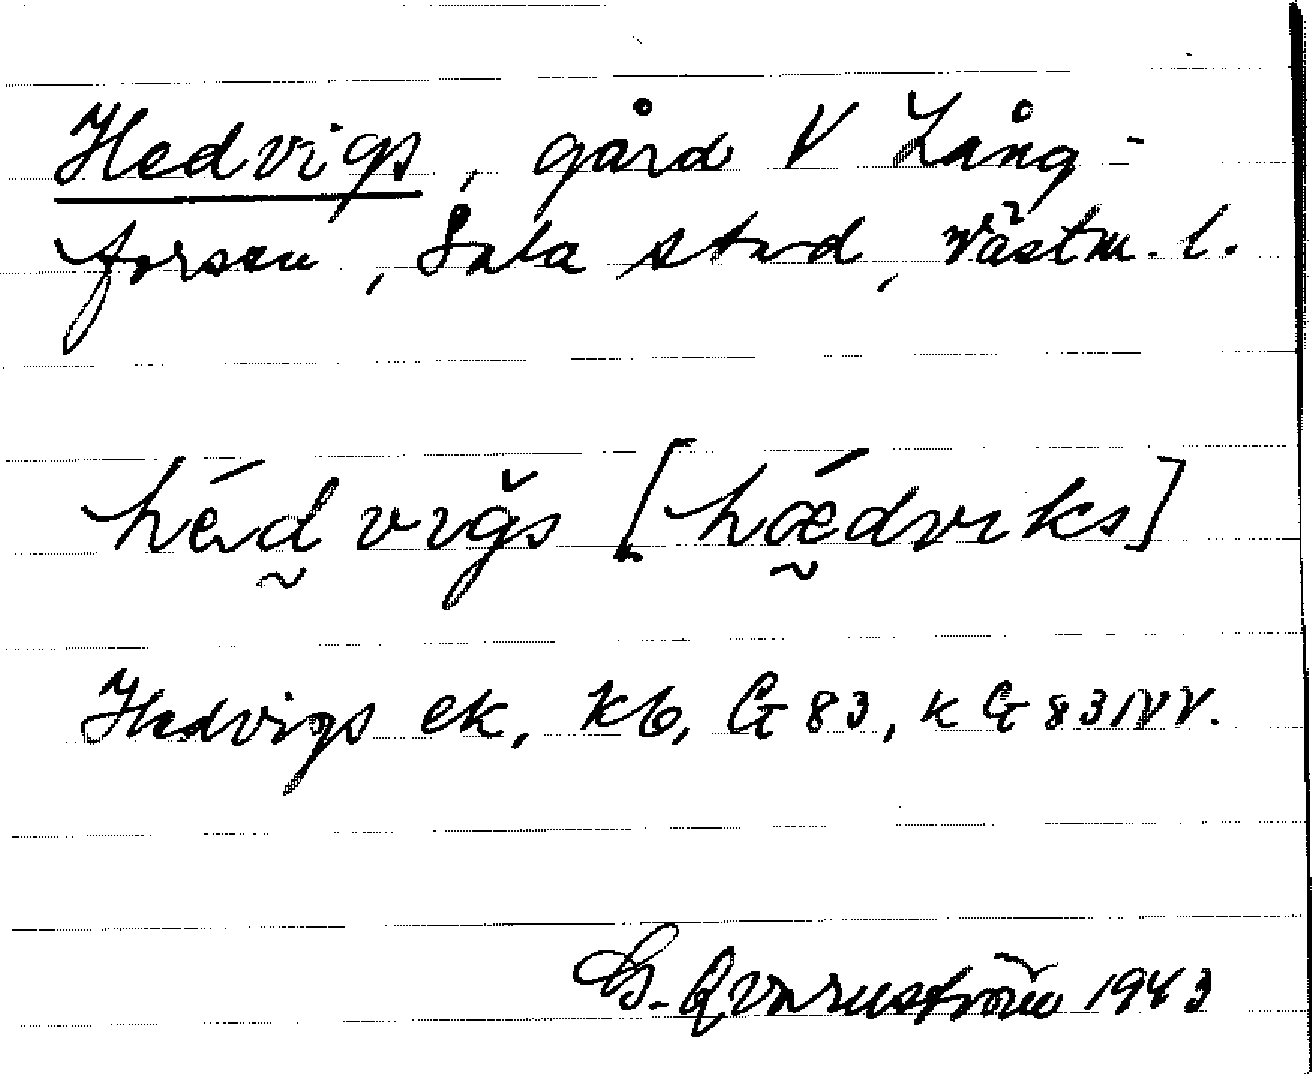 Hedvigs, gård V Lång-
forsen, Sala stad, Västm. l.
hédvigs [hǽdviks]
Hedvigs ek, Kb, G 83, k G 83 NV.
G. Qvarnström 1943